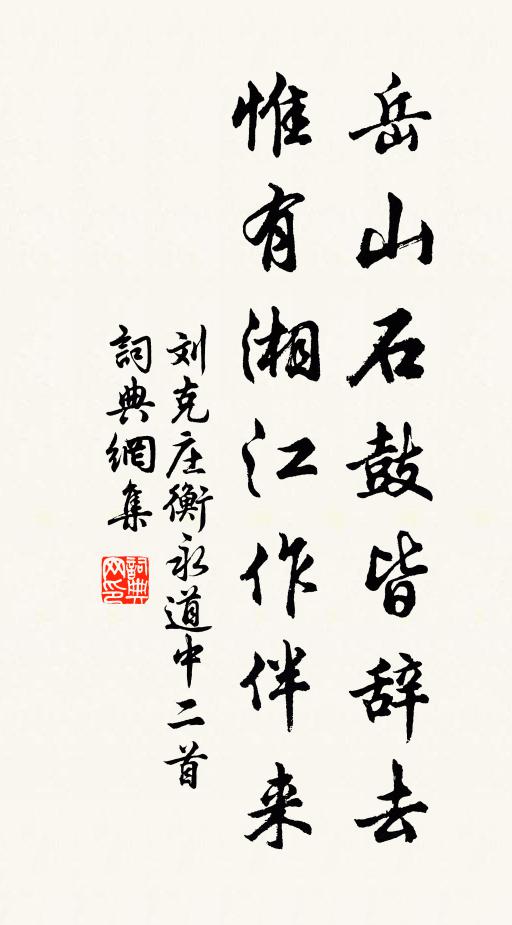 岳山石鼓皆辞去
惟有湘江作伴来
刘克庄衡永道中二首
詞典網集
詞典网印